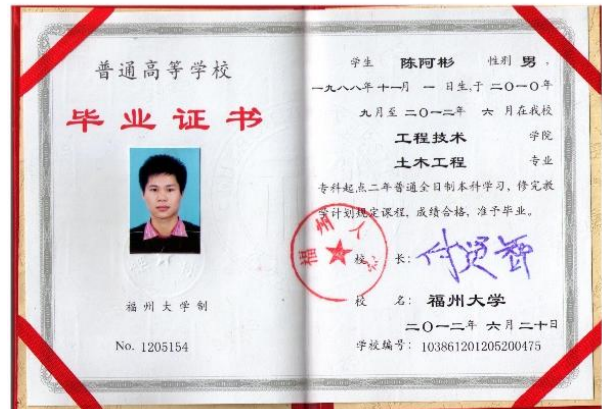 普通高等学校
毕业证书
福州大学制
No. 1205154
学生 陈阿彬 性别 男，
一九八八年十一月 一 日生，于 二〇一〇年
九月至 二〇一二年 六 月在我校
工程技术 学院
土木工程 专业
专科起点二年普通全日制本科学习，修完教
学计划规定课程，成绩合格，准予毕业。
校 长：
校 名：福州大学
二〇一二年 六月二十日
学校编号：103861201205200475